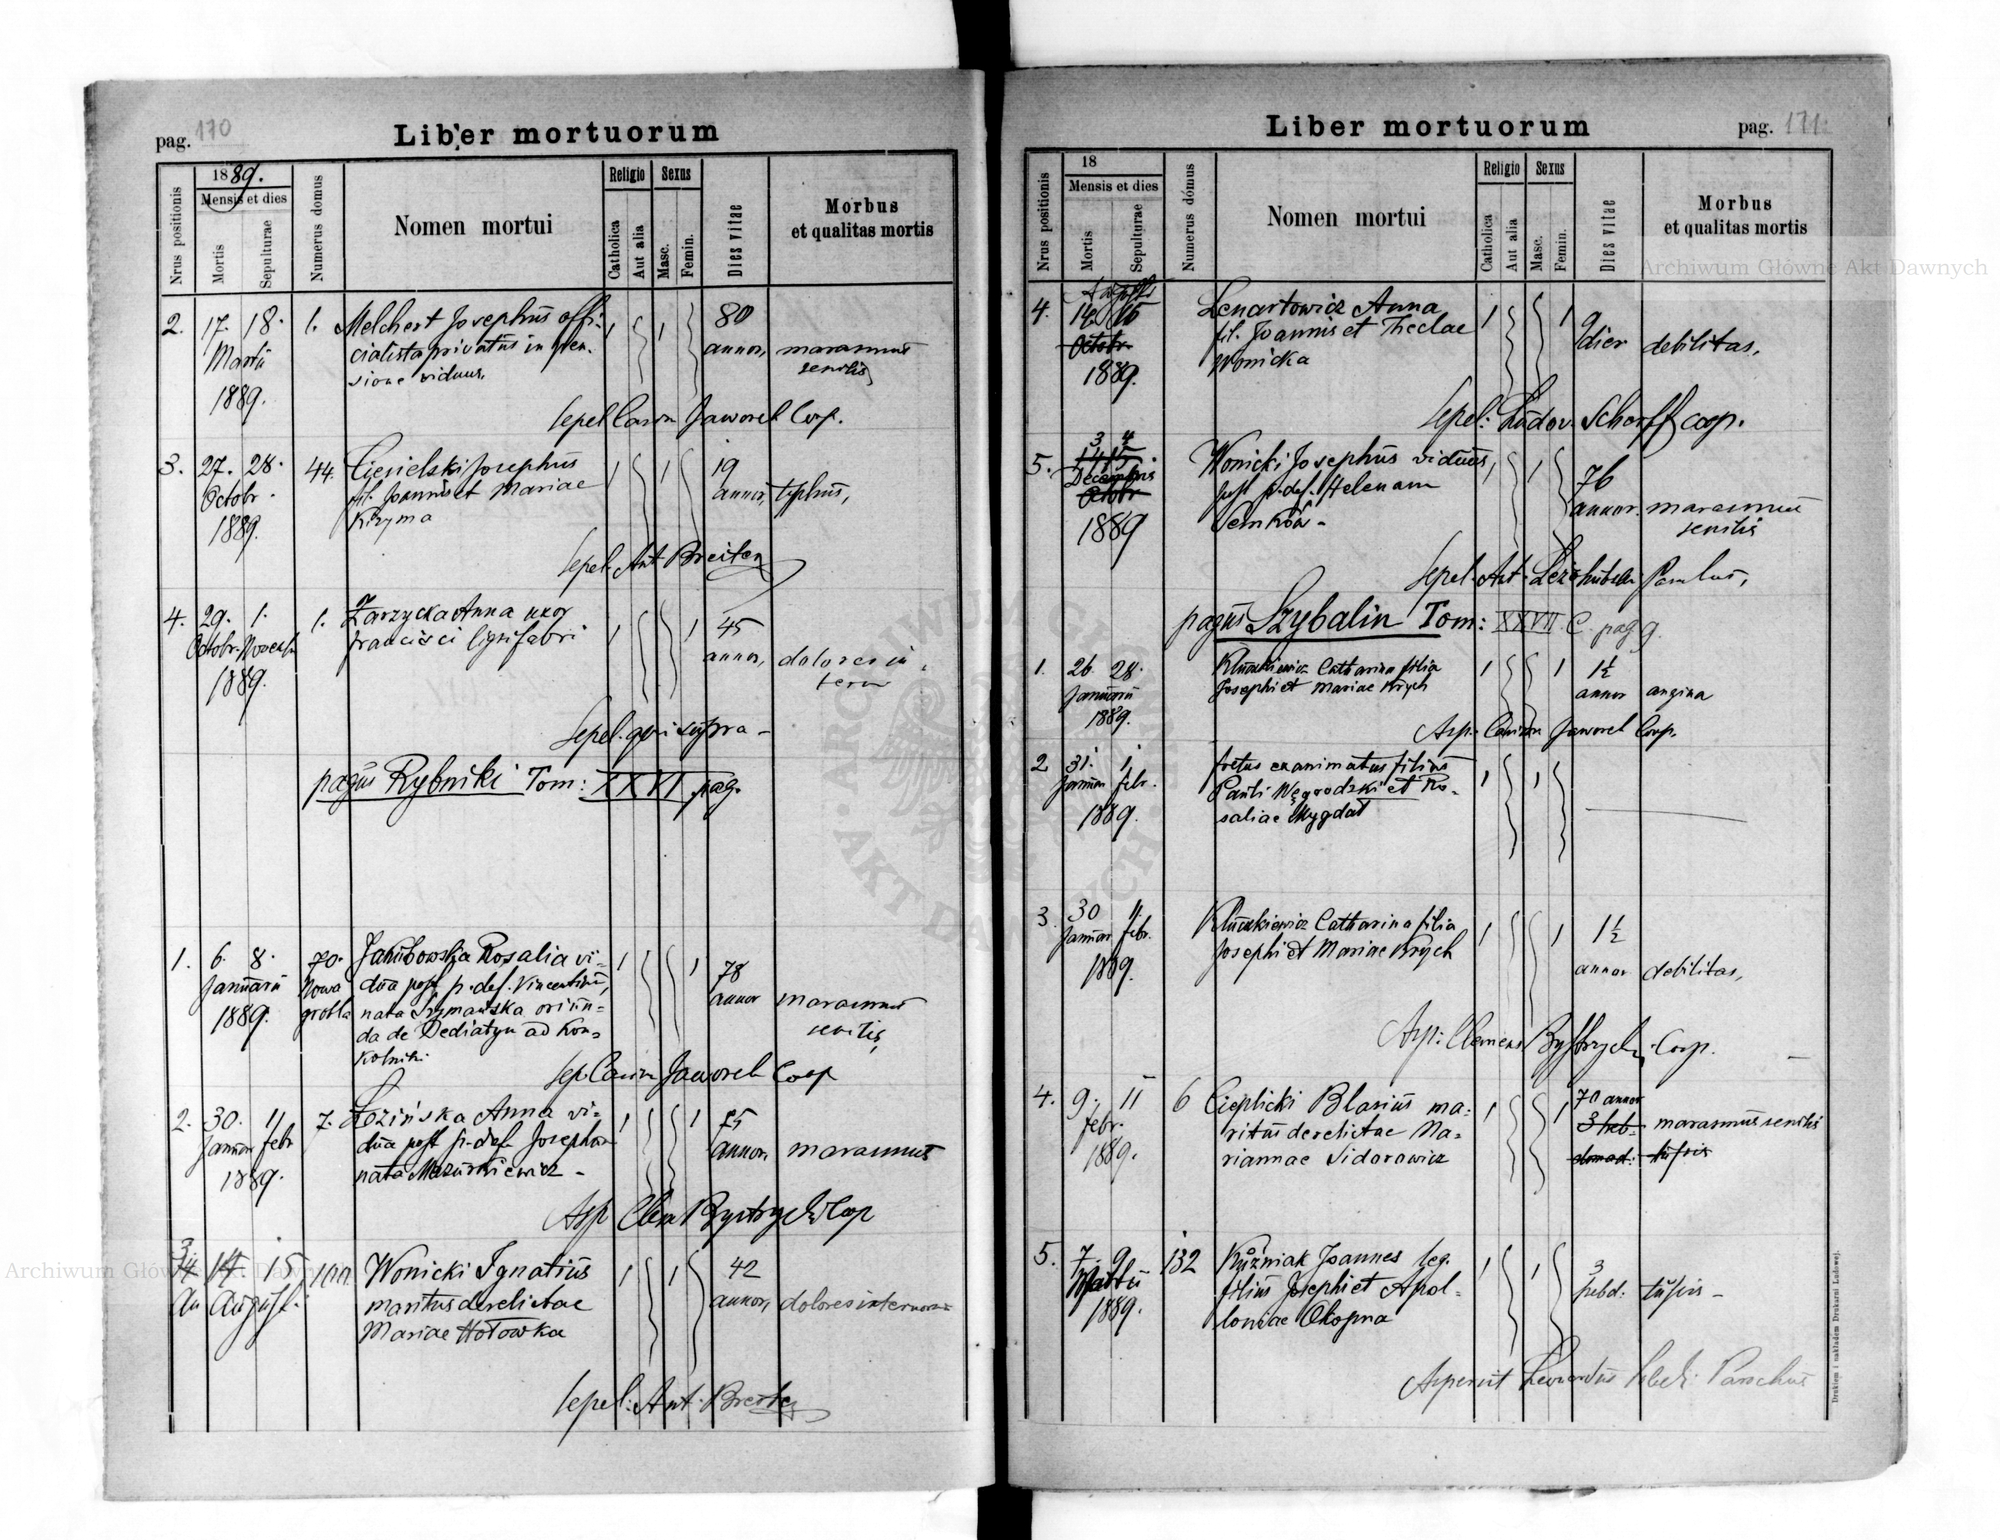 pag. 170
Liber mortuorum
Nrus positionis
1889.
Mensis et dies
Mortis
Sepulturae
Numerus domus
Nomen mortui
Religio
Catholica
Aut alia
Sexus
Masc.
Femin.
Dies vitae
Morbus
et qualitas mortis
2. 17. 18. 1. Melchert Josephus offi- 1 1 80
Martii cialista privatus in pen- annor. marasmus
sione viduus. senilis
1889.
Sepel. Jaworek Coop.
3. 27. 28. 44. Ciesielski Josephus 1 1 19
Octobr. fil. Joannis et Mariae annor. typhus,
1889. Kizyma
Sepel. Ant. Breiter
4. 29. 1. 1. Zarzycka Anna uxor 1 1 45
Octobr. Novemb. Francisci lignifabri annor. dolores in
1889. tern
Sepel. qui supra -
pagus Rybniki Tom: XXVI pag.
1. 6. 8. 70. Jakubowska Rosalia vi- 1 1 78
Januarii Nowa dua post p. def. Vincentium, annor marasmus
1889. grobla nata Szymańska oriun- senilis
da de Dediatyn ad Kon-
kolniki
Sep. Jaworek Coop
2. 30. 1 7. Łozińska Anna vi- 1 1 75
Januar febr dua post p. def. Josephum annor. marasmus
1889. nata Mazurkiewicz -
Asp Clem Bystrycki Coop
3 14 15 Wonicki Ignatius 1 1 42
August. maritus derelictae annor, dolores internorum
Mariae Hołowka
Sepel: Ant. Breiter
Liber mortuorum
pag. 171.
Nrus positionis
18
Mensis et dies
Mortis
Sepulturae
Numerus domus
Nomen mortui
Religio
Catholica
Aut alia
Sexus
Masc.
Femin.
Dies vitae
Morbus
et qualitas mortis
4. 14 15 Lenartowicz Anna 1 1 9
Octobr. fil. Joannis et Theclae dier debilitas,
1889. Wonicka
Sepel: Ludov. Schorff coop.
3 4
5. Decembris Wonicki Josephus viduus, 1 1 76
Octobr post p. def. Helenam annor. marasmus
1889 Semków - senilis
Sepel. Ant.
pagus Szybalin Tom: XXVII C. pag 9.
1. 26. 28. Catharina filia 1 1 1½
Januarii Josephi et Mariae Krych annor angina
1889.
Asp. Jaworek Coop.
2 31. 1. foetus exanimatus filius 1 1
Januar febr. Pauli Węgrodzki et Ro-
1889. saliae Mygdał
3. 30 1. Catharina filia 1 1 1½
Januar febr. Josephi et Mariae Krych annor debilitas,
1889.
Asp: Clemens Bystrycki Coop.
4. 9. 11 6 Cieplicki Blasius ma- 1 1 70 annor
febr. ritus derelictae Ma- 3 heb- marasmus senilis
1889. riannae Sidorowicz domad. tussis
5. 7. 9. 132 Kuźniak Joannes leg. 1 1 3
Martii filius Josephi et Apol- hebd: tussis -
1889. loniae Okopna
Aspersit Parochus
Drukiem i nakładem Drukarni Ludowej.
Archiwum Główne Akt Dawnych
Archiwum Główne Akt Dawnych
ARCHIWUM GŁÓWNE AKT DAWNYCH